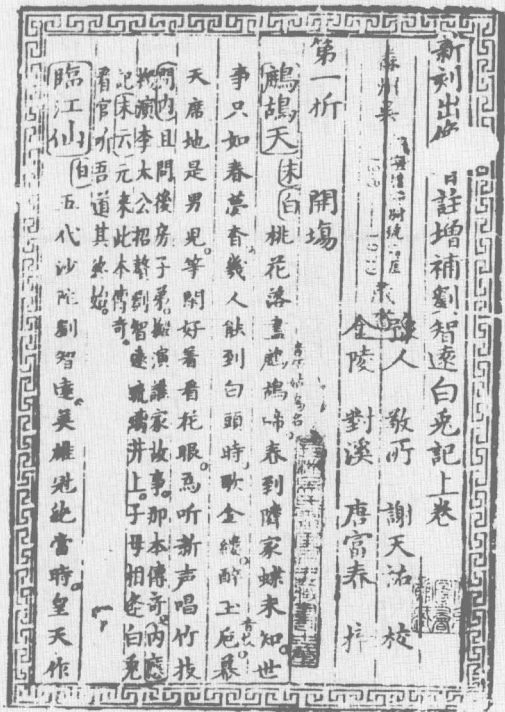 新刻出 註增補劉智遠白兔記上卷
豫人 敬所 謝天祐 校
金陵 對溪 唐富春 梓
第一折 開塲
鷓鴣天 末 白 桃花落盡鷓鴣啼春到隣家蝶未知。世
事只如春夢杳。幾人能到白頭時。歌金縷。醉玉卮。幕
天席地是男兒。等閑好着看花眼。爲听新声唱竹枝
問內且問後房子弟。搬演誰家故事。那本傳奇。內應
搬演李太公招贅劉智遠。琉璃井上。子母相逢白兔
記末云元來此本傳奇。
看官听吾道其終始。
臨江仙 白 五代沙陀劉智遠。英雄冠絕當時。皇天作